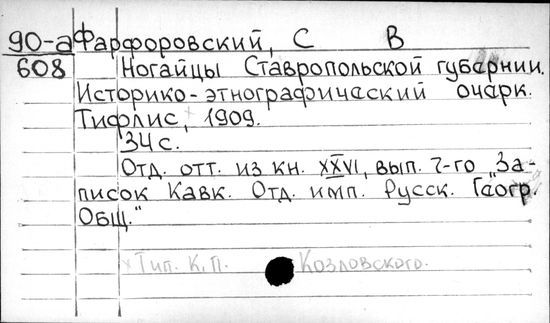 90-а Фарфоровский, С В
608 Ногайцы Ставропольской губернии.
Историко-этнографический очерк.
Тифлис, 1909.
34 с.
Отд. отт. из кн. XXVI, вып. 7-го "За-
писок Кавк. Отд. имп. Русск. Геогр.
Общ."
Тип. К.П. Козловского.